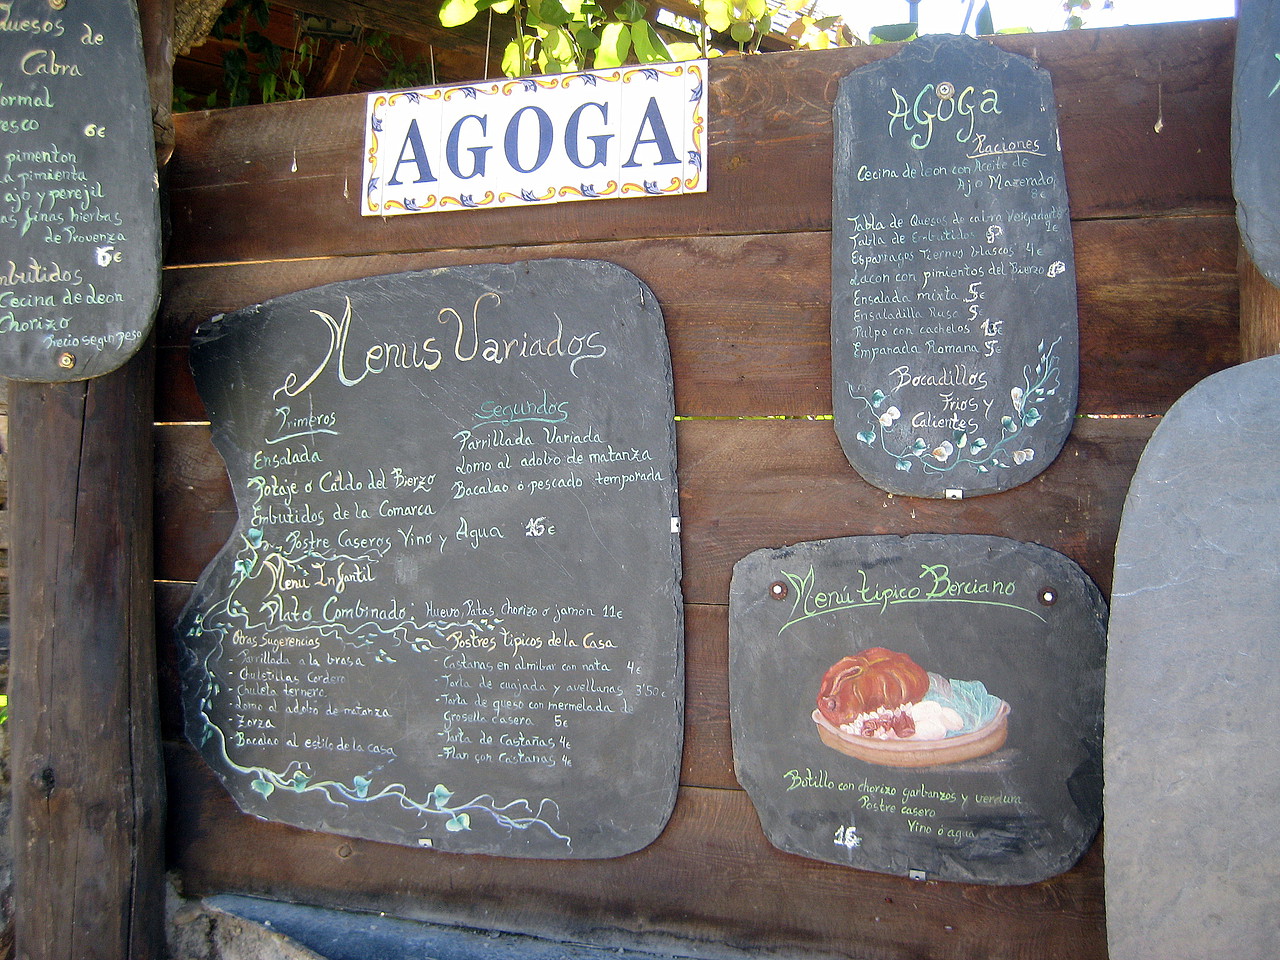 Quesos de
Cabra
6€
pimenton
pimienta
ajo y perejil
finas hierbas
de Provenza
6€
Cecina de Leon
Chorizo
Precio segun peso
AGOGA
Menus Variados
Primeros
Ensalada
Potaje o Caldo del Bierzo
Embutidos de la Comarca
Segundos
Parrillada Variada
Lomo al adobo de matanza
Bacalao ó pescado temporada
Postre Caseros Vino y Agua 16€
Menú Infantil
Plato Combinado: Huevo, Patas, Chorizo o jamón 11€
Otras Sugerencias
- Parrillada a la brasa
- Chuletillas Cordero
- Chuleta ternera
- Lomo al adobo de matanza
- Zorza
- Bacalao al estilo de la casa
Postres tipicos de la Casa
Castañas en almibar con nata 4€
- Tarta de cuajada y avellanas 3'50€
- Tarta de queso con mermelada de
Grosella casera 5€
- Tarta de Castañas 4€
- Flan con Castañas 4€
AGOGA
Raciones
Cecina de leon con Aceite de
Ajo Macerado
8€
Tabla de Quesos de cabra
Tabla de Embutidos
Esparragos Tiernos blascos 4€
Lacon con pimientos del Bierzo
Ensalada mixta 5€
Ensaladilla Rusa 5€
Pulpo con cachelos 15€
Empanada Romana 5€
Bocadillos
Frios y
Calientes
Menú típico Berciano
Botillo con chorizo garbanzos y verdura
Postre casero
Vino ó agua
16€